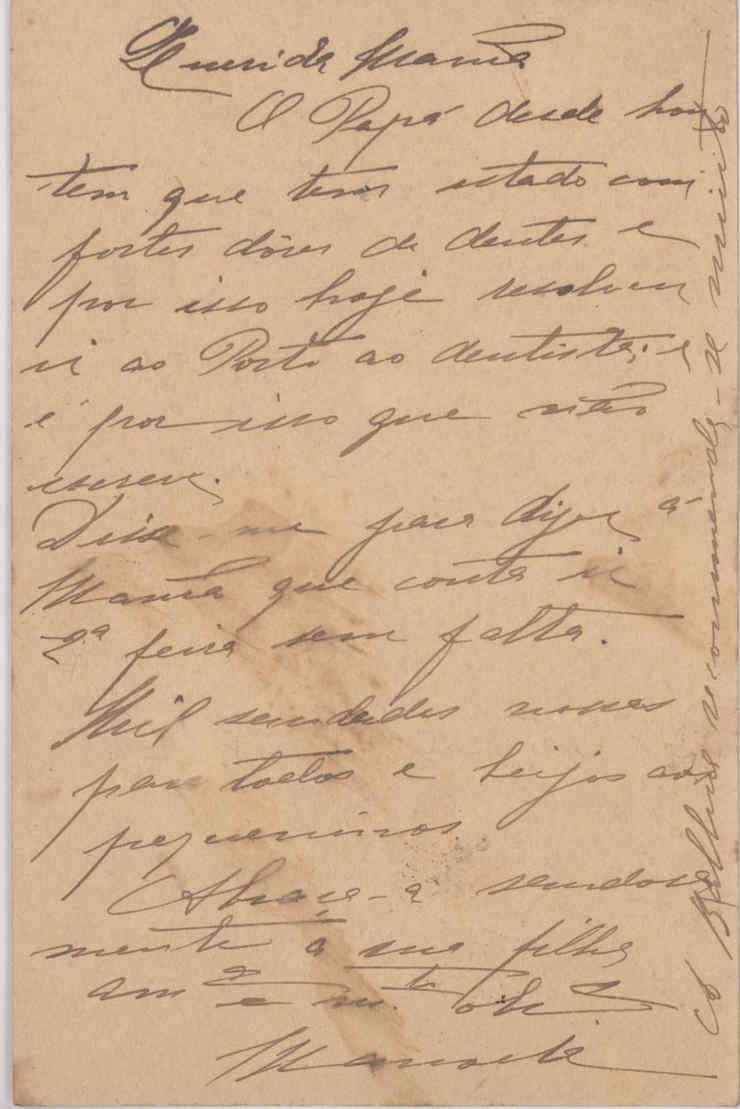 Querida Mamã
O Papá desde hon
tem que tem estado com
fortes dôres de dentes e
por isso hoje resolveu
ir ao Porto ao dentista; e
é por isso que não
escreve.
Disse-me para dizer á
Mamã que conta ir
2ª feira sem falta.
Mil saudades nossas
para todos e beijos aos
pequeninos.
Abraça-a saudosa
mente a sua filha
am.ª e m.to
A recommenda-se muito